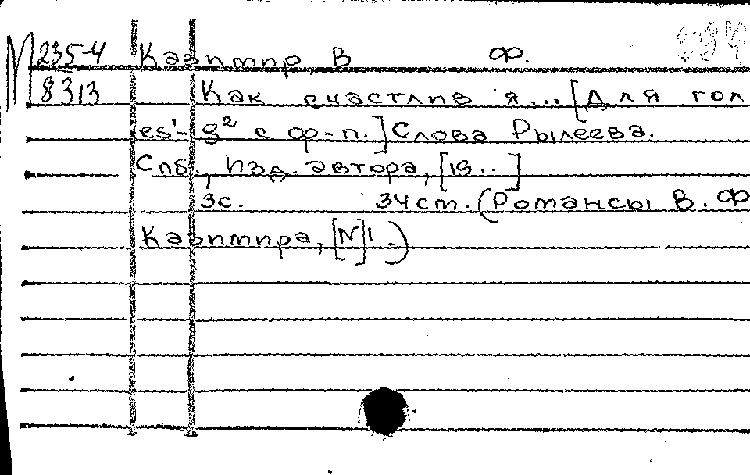 М 235-4 Казимир, В Ф.
8313 Как счастлив я... [Для гол
es¹-g² с ф-п.] Слова Рылеева.
Спб., Изд. автора, [18..]
3с. 34см. (Романсы В. Ф
Казимира, [№]1.)